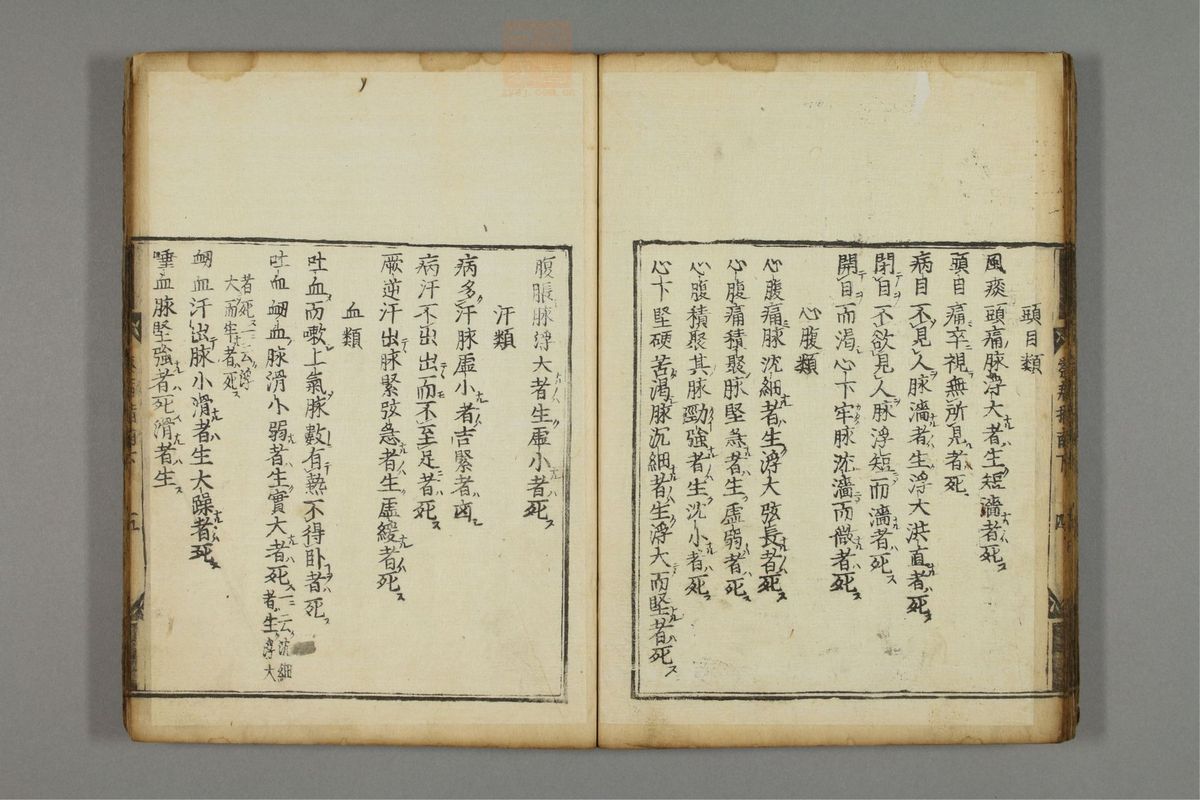 頭目類
風痰頭痛脉浮大者生短濇者死
頭目痛卒視無所見者死
病目不見人脉濇者生浮大洪直者死
閉目不欲見人脉浮短而濇者死
開目而渴心下牢脉沈濇而微者死
心腹類
心腹痛脉沈細者生浮大弦長者死
心腹痛積聚脉堅急者生虛弱者死
心腹積聚其脉勁強者生沈小者死
心下堅硬苦渴脉沉細者生浮大而堅者死
腹脹脉浮大者生虛小者死
汗類
病多汗脉虛小者吉緊者凶
病汗不出出而不至足者死
厥逆汗出脉緊弦急者生虛緩者死
血類
吐血而嗽上氣脉數有熱不得臥者死
吐血衂血脉滑小弱者生實大者死一云沈細者生浮大
者死一云浮大而牢者死
衂血汗出脉小滑者生大躁者死
唾血脉堅強者死滑者生